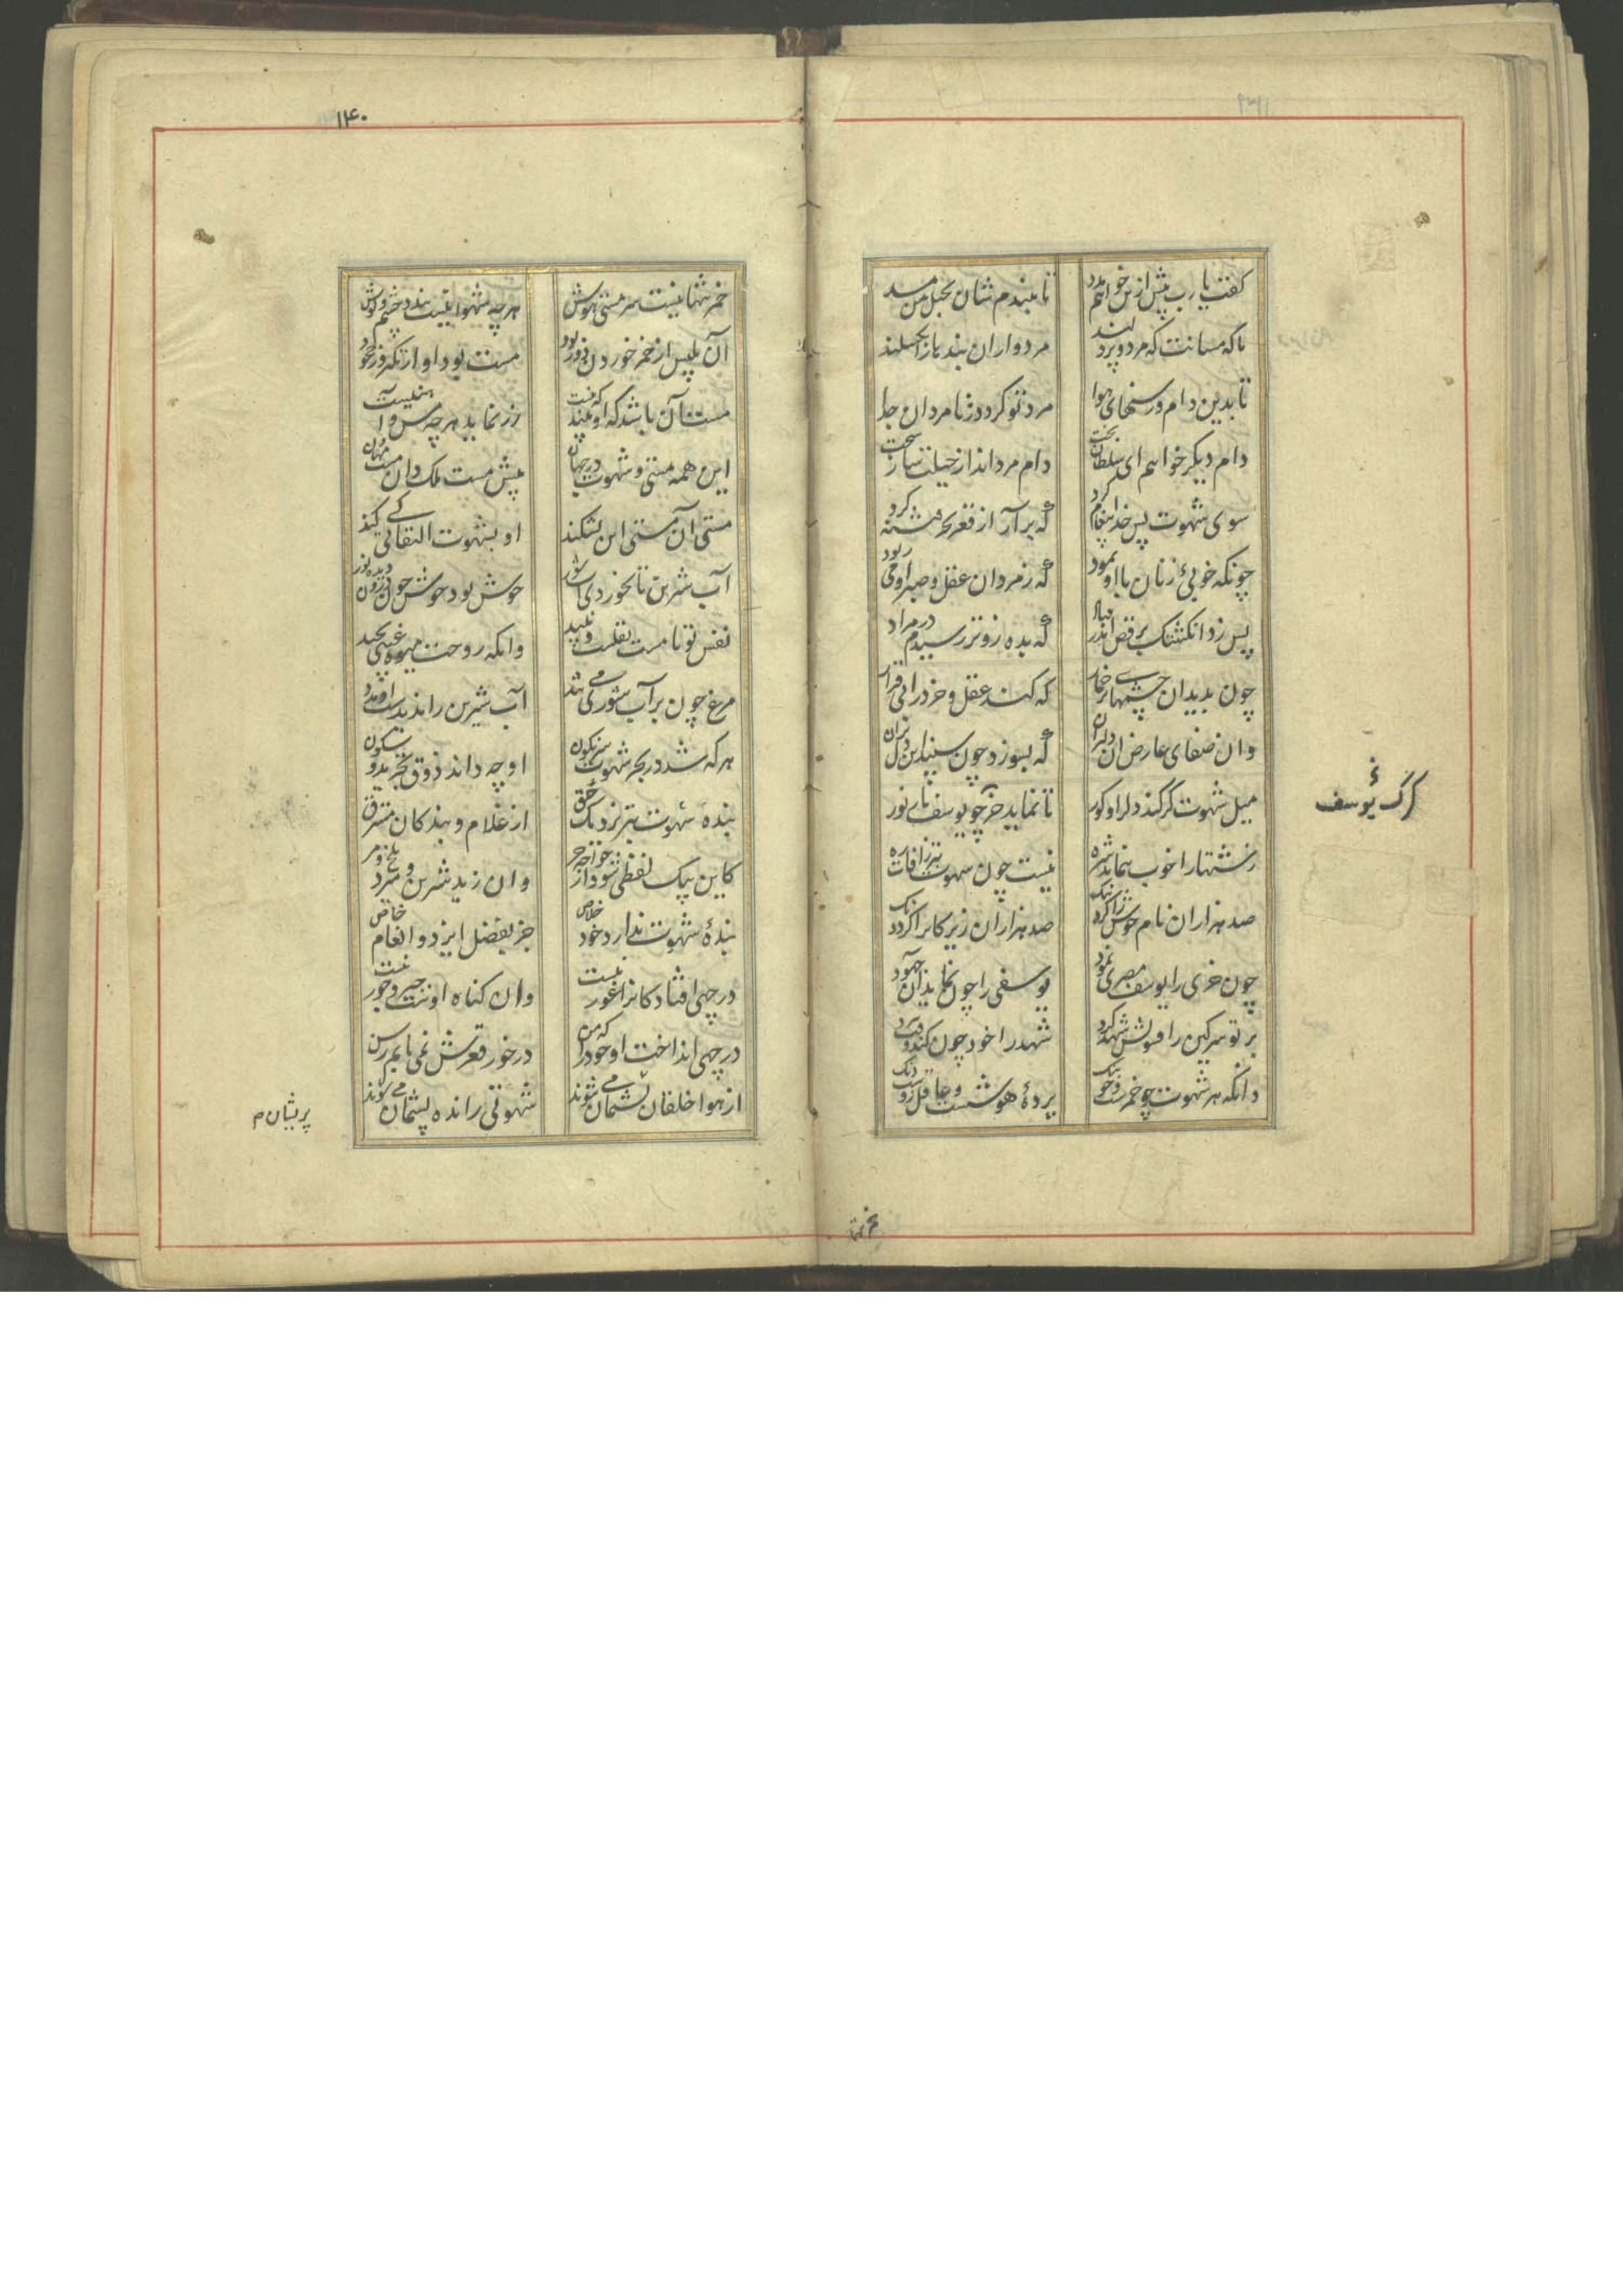 گفت یارب بیش ازین خواهم مدد
تا ببندم شان بحبل من مسد
تا که مستانت که مرد و پردلند
مردوار آن بندها را بگسلند
تا بدین دام و رسنهای هوا
مرد تو گردد ز نامردان جدا
دام دیگر خواهم ای سلطان بخت
دام مردانداز حیلت ساز سخت
سوی شهوت پس خدا پیغام کرد
که برآر از قعر بحر فتنه گرد
چونکه خوبی زنان با او نمود
که ز مردان عقل و صبر او می ربود
پس زد انگشتک برقص اندر فتاد
که بده زوتر رسیدم در مراد
چون بدید آن چشمهای پرخمار
که کند عقل و خرد را بی قرار
وان صفای عارض آن دلبران
که بسوزد چون سپند این دل بران
میل شهوت کر کند دل را و کور
تا نماید خر چو یوسف نار نور
زشتها را خوب بنماید شره
نیست چون شهوت بتر ز آفات ره
صد هزاران نام خوش را کرد ننگ
صد هزاران زیرکانرا کرد دنگ
چون خری را یوسف مصری نمود
یوسفی را چون نماید آن جهود
بر تو سرگین را فسونش شهد کرد
شهد را خود چون کند وقت نبرد
دانکه هر شهوت چو خمرست و چو بنگ
پرده هوشست و عاقل زوست دنگ
گرگ یوسف
۱۴۰
خمر تنها نیست سرمستی هوش
هرچه شهوانیست بندد چشم و گوش
آن بلیس از خمر خوردن دور بود
مست بود او از تکبر وز جحود
مست آن باشد که او بیند که نیست
زر نماید هرچه مس و آهنیست
این همه مستی و شهوت در جهان
پیش مست ملک دان مستهان
مستی آن مستی این بشکند
او بشهوت التفاتی کی کند
آب شیرین تا نخوردی آب شور
خوش بود خوش چون درون دیده نور
نفس تو تا مست نقلست و نبید
وانکه روحت میوه غیبی نچید
مرغ چون بر آب شوری می تند
آب شیرین را ندیدست او مدد
هرکه شد در بحر شهوت سرنگون
او چه داند ذوق بحر بی سکون
بنده شهوت بتر نزدیک حق
از غلام و بندگان مسترق
کاین بیک لفظی شود از خواجه حر
وان زید شیرین و میرد تلخ و مر
بنده شهوت ندارد خود خلاص
جز بفضل ایزد و انعام خاص
در چهی افتاد کانرا غور نیست
وان گناه اوست جبر و جور نیست
در چهی انداخت او خود را که من
درخور قعرش نمی یابم رسن
از هوا خلقان پشمان می شوند
شهوتی رانده پشیمان می شوند
پریشان م
خمر تنها